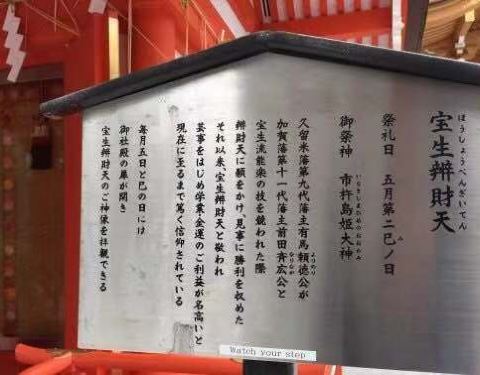 宝生辨財天
ほうしょうべんざいてん
祭礼日　五月第二巳ノ日
み
御祭神　市杵島姫大神
いちきしまひめのおおかみ
久留米藩第九代藩主有馬頼徳公が
よりのり
加賀藩第十一代藩主前田斉広公と
なりなが
宝生流能楽の技を競われた際
辨財天に願をかけ、見事に勝利を収めた
それ以来、宝生辨財天と敬われ
芸事をはじめ学業金運のご利益が名高いと
現在に至るまで篤く信仰されている
毎月五日と巳の日には
御社殿の扉が開き
宝生辨財天のご神像を拝観できる
Watch your step